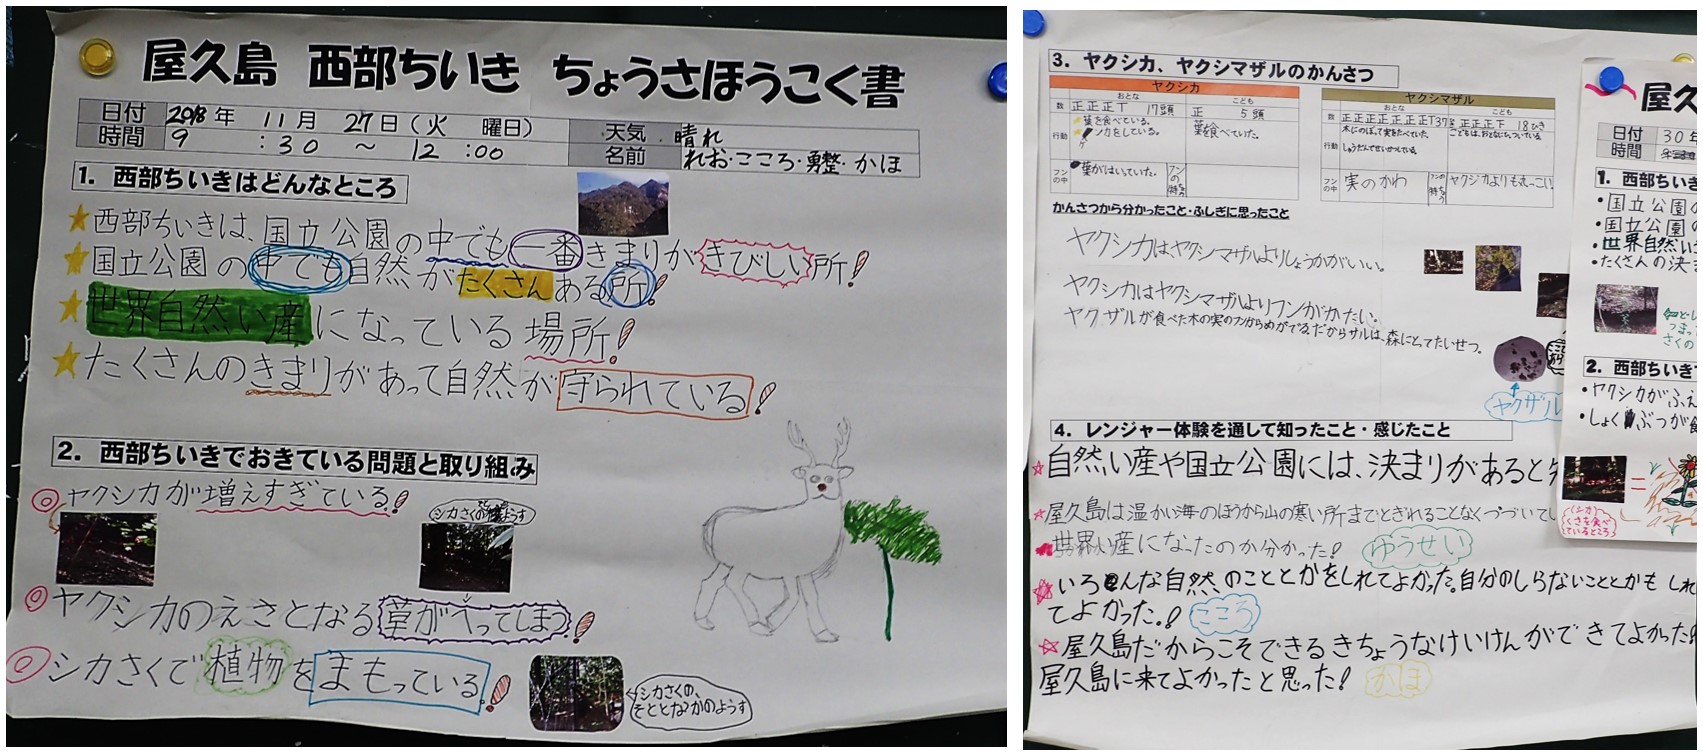 屋久島 西部ちいき ちょうさほうこく書
日付 2018年 11月 27日(火 曜日)
時間 9 :30 ~ 12 :00
天気 晴れ
名前 れお・こころ・勇整・かほ
1. 西部ちいきはどんなところ
★西部ちいきは、国立公園の中でも一番きまりがきびしい所!
★国立公園の中でも自然がたくさんある所!
★世界自然い産になっている場所!
★たくさんのきまりがあって自然が守られている!
2. 西部ちいきでおきている問題と取り組み
◎ヤクシカが増えすぎている!
◎ヤクシカのえさとなる草がへってしまう!
◎シカさくで植物をまもっている!
シカさくの、
そととなかのようす
3. ヤクシカ、ヤクシマザルのかんさつ
ヤクシカ
おとな こども
数 正正正T 17頭 正 5頭
行動 葉を食べている。 葉を食べていた。
フンの中 葉がはいっていた。
ヤクシマザル
おとな こども
数 正正正正正正正T37 正正正下 18ひき
行動 木にのぼって実をたべていた。
しゅうだんでせいかつしている。
フンの中 実のかわ
かんさつから分かったこと・ふしぎに思ったこと
ヤクシカはヤクシマザルよりしょうかがいい。
ヤクシカはヤクシマザルよりフンがかたい。
ヤクザルが食べた木の実のフンからめがでるだからサルは、森にとってたいせつ。
ヤクザル
4. レンジャー体験を通して知ったこと・感じたこと
☆自然い産や国立公園には、決まりがあると
☆屋久島は温かい海のほうから山の寒い所までとぎれることなくつづいてい
世界い産になったのが分かった! ゆうせい
いろんな自然のこととかをしれてよかった。自分のしらないこととかもしれ
てよかった。! こころ
☆屋久島だからこそできるきちょうなけいけんができてよかった!
屋久島に来てよかったと思った! かほ
屋久
日付 30年
時間
1. 西部ちいき
・国立公園の
・国立公園の
・世界自然い
・たくさんの決ま
2. 西部ちいきで
・ヤクシカがふえ
・しょくぶつが
(シカ)
くさを食べ
ているところ